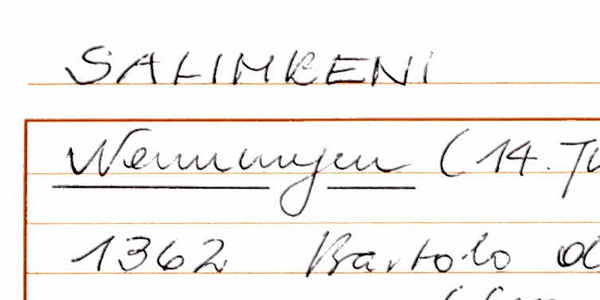 SALIMBENI
Nennungen (14. Ju
1362 Bartolo d